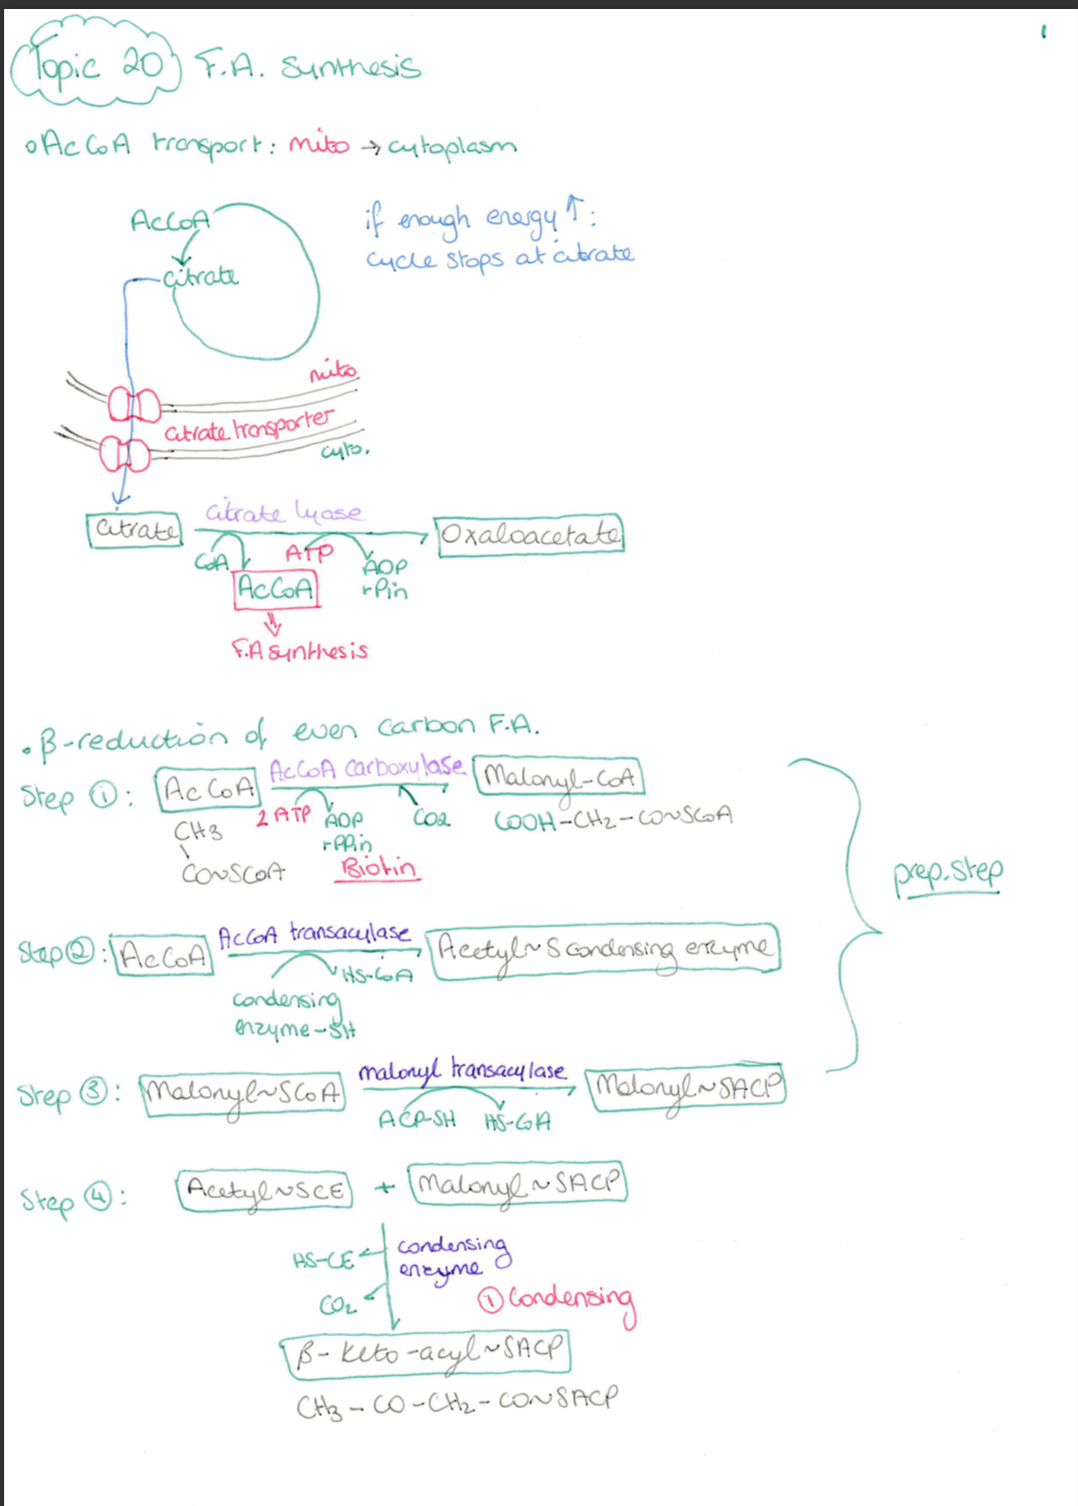 1
Topic 20 F.A. synthesis
AcCoA transport: mito → cytoplasm
AcCoA
citrate
if enough energy ↑:
cycle stops at citrate
mito.
citrate transporter
cyto.
citrate
citrate lyase
Oxaloacetate
CoA
ATP
ADP
+Pin
AcCoA
F.A synthesis
• β-reduction of even carbon F.A.
Step ①: AcCoA AcCoA carboxylase Malonyl-CoA
2 ATP ADP CO2 COOH-CH2-CO~SCoA
+PPin
CH3
CO~SCoA
Biotin
prep.step
Step ②: AcCoA AcCoA transacylase Acetyl~S condensing enzyme
HS-CoA
condensing
enzyme-SH
Step ③: Malonyl~SCoA malonyl transacylase Malonyl~SACP
ACP-SH HS-CoA
Step ④: Acetyl~SCE + Malonyl~SACP
HS-CE condensing
enzyme
CO2 ① Condensing
β-keto-acyl~SACP
CH3-CO-CH2-CO~SACP